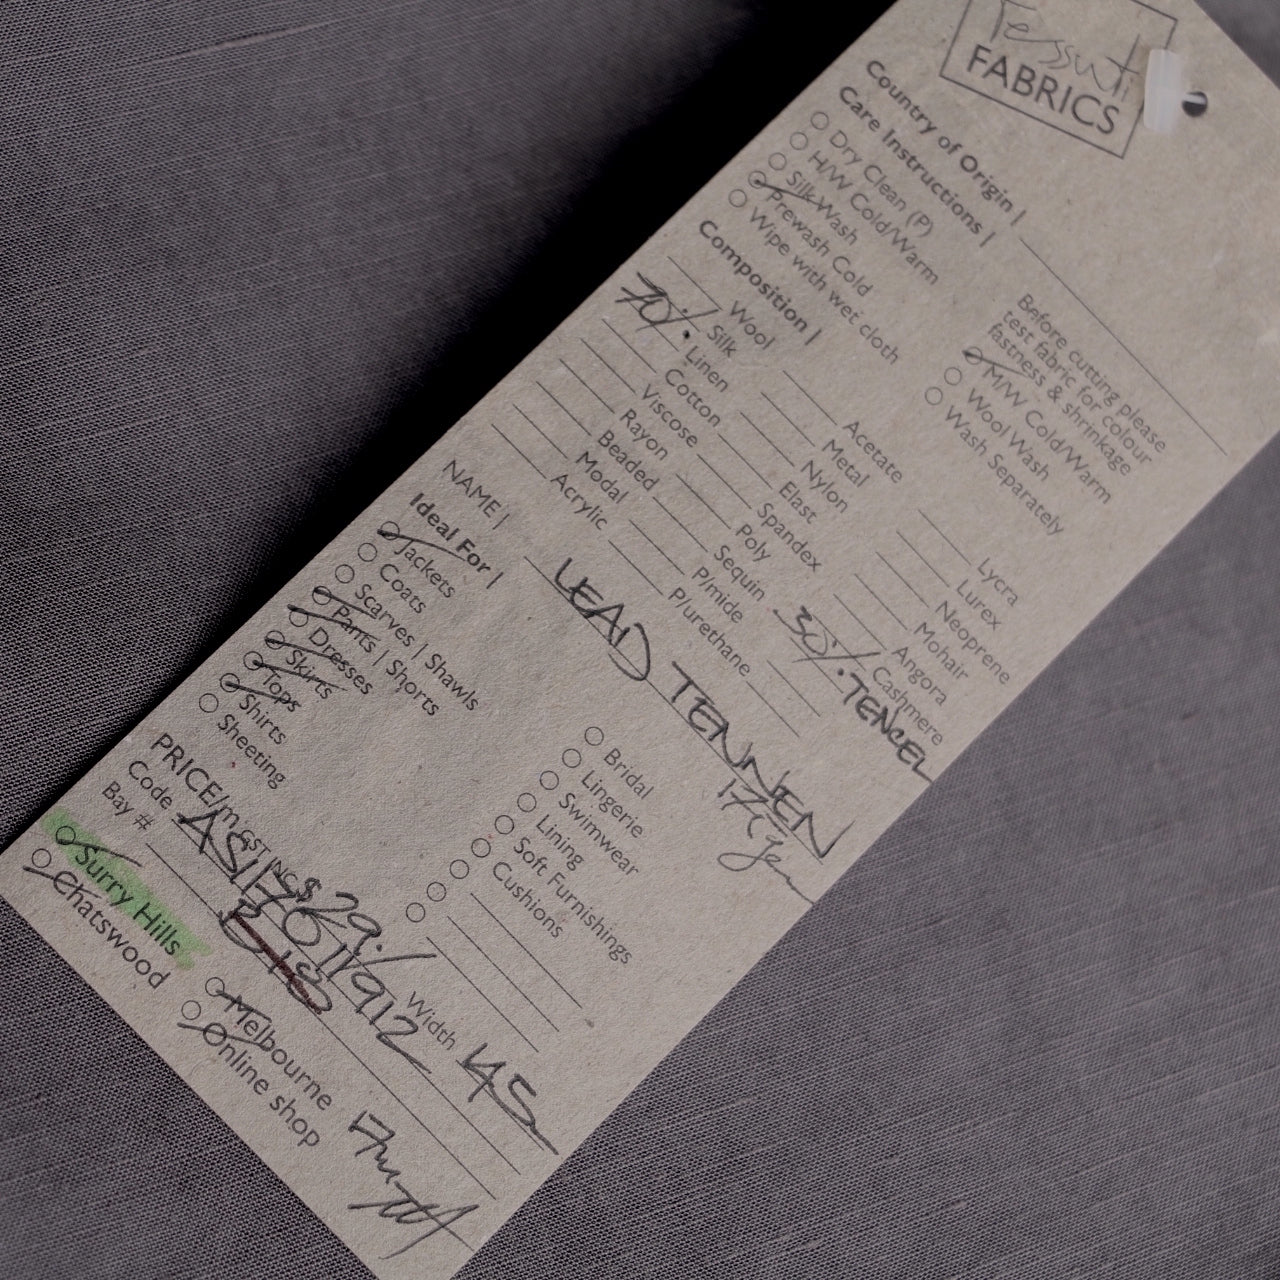 Tessuti
FABRICS
Country of Origin |
Care Instructions |
Dry Clean (P)
H/W Cold/Warm
Silk Wash
Prewash Cold
Wipe with wet cloth
Before cutting please
test fabric for colour
fastness & shrinkage
M/W Cold/Warm
Wool Wash
Wash Separately
Composition |
Wool
Silk
70%. Linen
Cotton
Viscose
Rayon
Beaded
Modal
Acrylic
Acetate
Metal
Nylon
Elast
Spandex
Poly
Sequin
P/mide
P/urethane
Lycra
Lurex
Neoprene
Mohair
Angora
Cashmere
30%. TENCEL
NAME | LEAD TENNEN
Ideal For |
Jackets
Coats
Scarves | Shawls
Pants | Shorts
Dresses
Skirts
Tops
Shirts
Sheeting
Bridal
Lingerie
Swimwear
Lining
Soft Furnishings
Cushions
PRICE/m GST INC $ 29./ Width 145
Code
Bay # B18
Surry Hills
Chatswood
Melbourne
Online shop